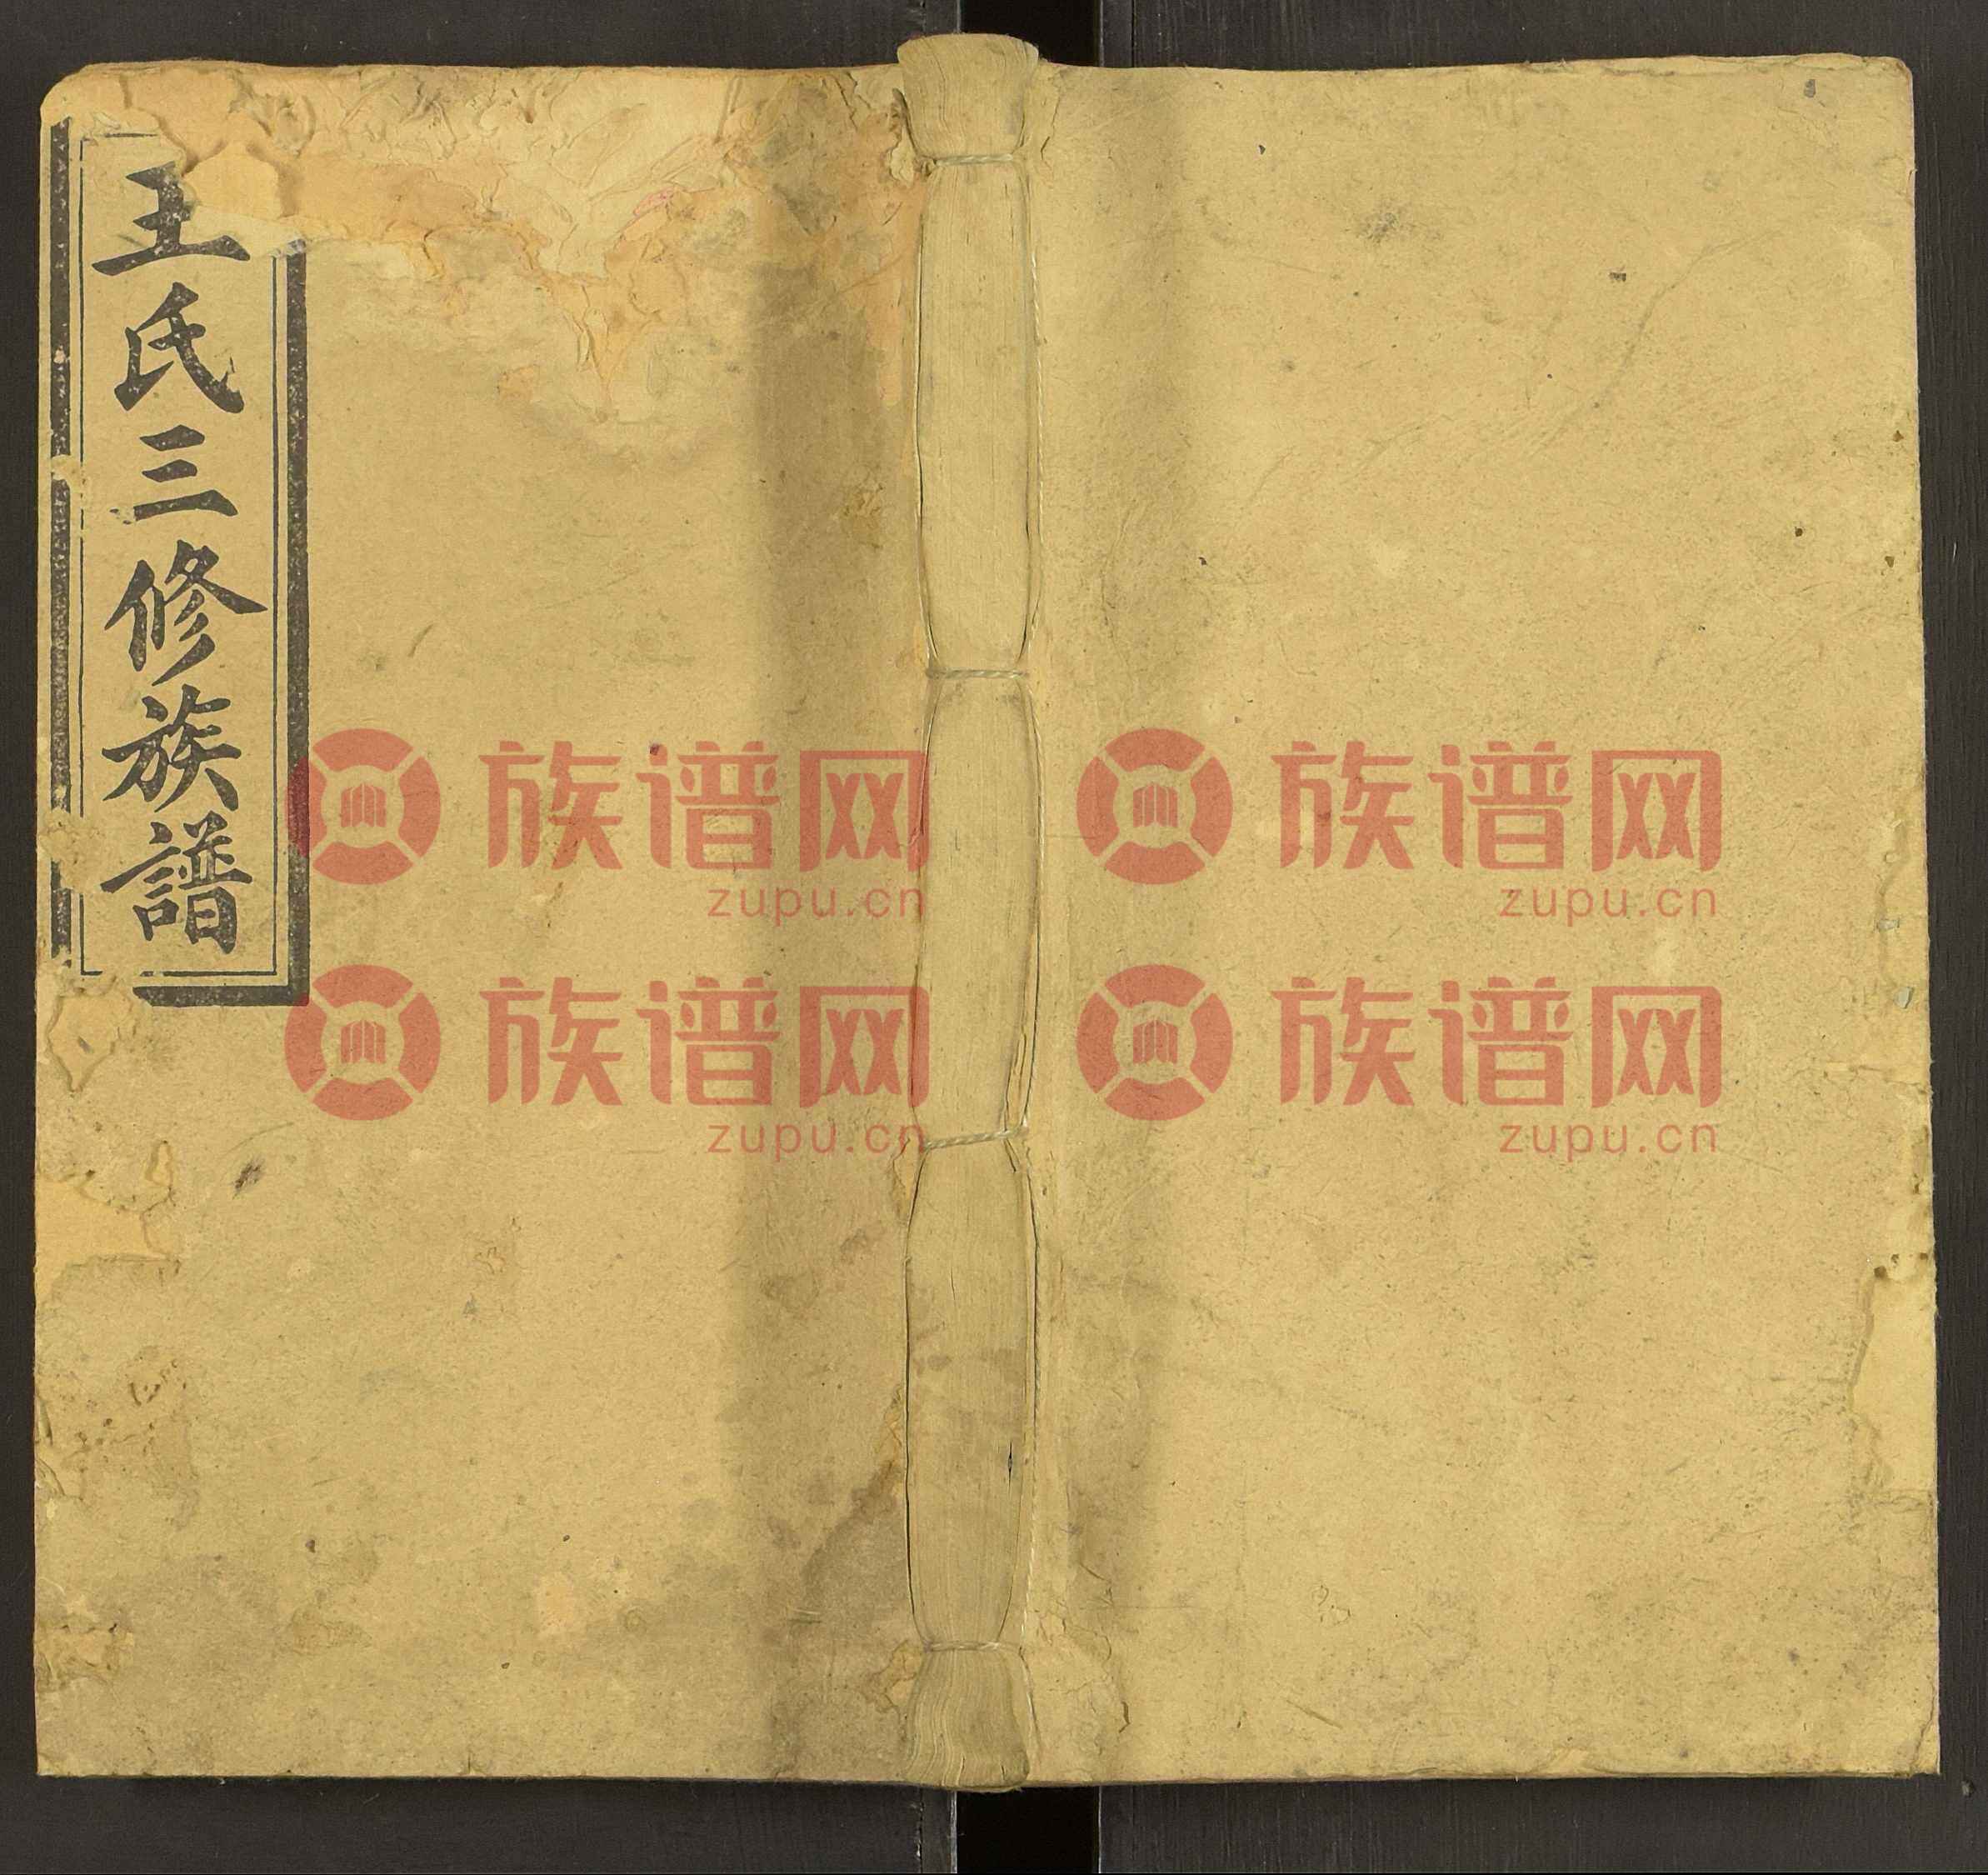 王氏三修族譜
族谱网
zupu.cn
族谱网
zupu.cn
族谱网
zupu.cn
族谱网
zupu.cn